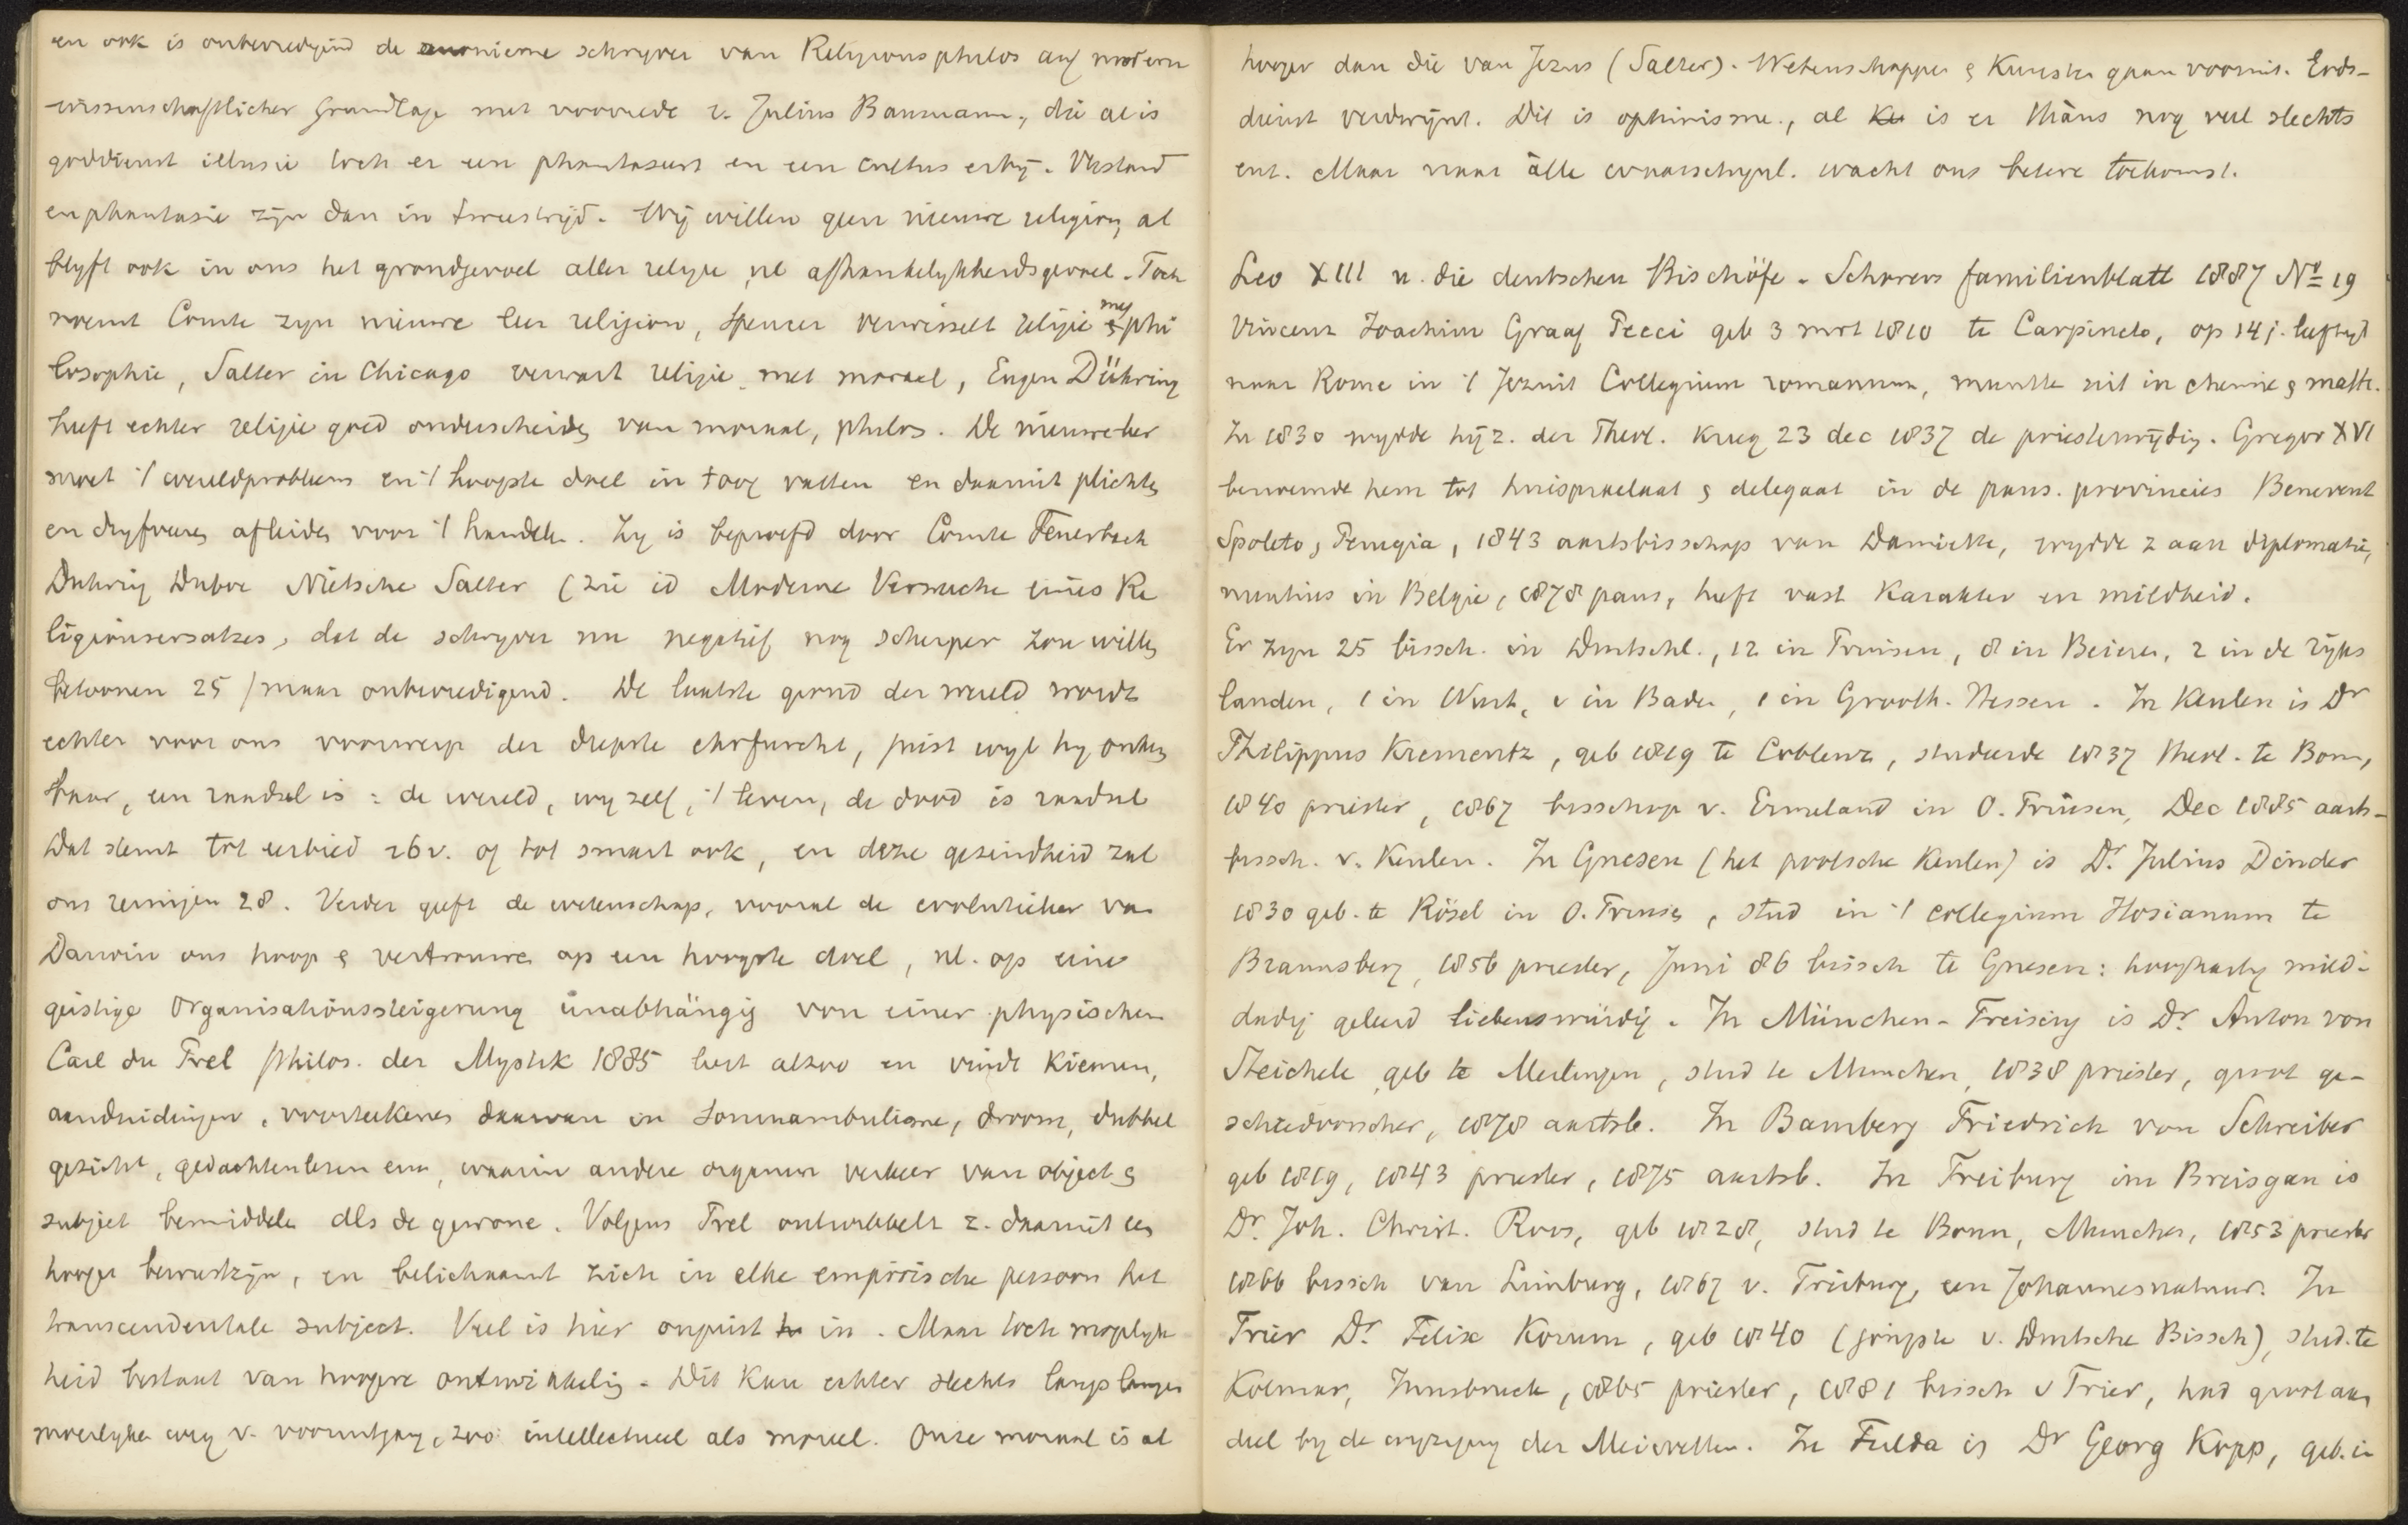 en ook is onbevredigend de anonieme schryver van Religionsphilos auf modern
wissenschaftlicher Grundlage met voorrede v. Julius Baumann, die al is
goddienst illusie toch er een phantasie en een cultus erbij. Verstand
en phantasie zijn dan in tweestrijd. Wij willen geen nieuwe religion, al
blyft ook in ons het grondgevoel aller religie, nl afhankelykheidsgevoel. Toch
noemt Comte zyn nieuwe leer religion, Spencer verwisselt religie met phi
losophie, Salter in Chicago verwart religie met moraal, Eugen Dühring
heeft echter religie goed onderscheiden van moraal, philos. De nieuwe leer
moet 't wereldprobleem en 't hoogste doel in 't oog vatten en daaruit plichten
en dryfveren afleiden voor 't handeln. Zy is beproefd door Comte Feuerbach
Duhring Duboc Nietsche Salter (zie id Moderne Versuche eines Re
ligionsersatzes, dat de schryver nu negatief nog scherper zou willen
betoonen 25 / maar onbevredigend. De laatste grond der wereld wordt
echter voor ons voorwerp der diepste ehrfurcht, juist wyl hy onken
baar, een raadsel is: de wereld, wy zelf, 't leven, de dood is raadsel
Dat stemt tot eerbied 26v. of tot smart ook, en deze gezindheid zal
ons reinigen 28. Verder geeft de wetenschap, vooral de evolutieleer van
Darwin ons hoop & vertrouwen op een hoogste doel, nl. op eine
geistige Organisationssteigerung unabhängig von einer physischen
Carl du Prel Philos. der Mystik 1885 leert alzoo en vindt kiemen,
aanduidingen, voorteekenen daarvan in somnambulisme, droom, dubbel
gezicht, gedachtenlezen enz, waarin andere organen verkeer van object &
subject bemiddelen als de gewone. Volgens Prel ontwikkelt z. daaruit een
hooger bewustzyn, en belichaamt zich in elke empirische persoon het
transcendentale subject. Veel is hier onjuist in. Maar toch mogelyk
heid bestaat van hoogere ontwikkeling. Dit kan echter slechts langs langen
moeilyken weg v. vooruitgang, zoo intellectueel als moreel. Onze moraal is al
hooger dan die van Jezus (Salter). Wetenschappen & Kunsten gaan vooruit. Gods-
dienst verdwynt. Dit is optimisme, al is er thans nog veel slechts
enz. Maar naar alle waarschynl. wacht ons betere toekomst.
Leo XIII u. die deutschen Bischöfe. Schorers familienblatt 1887 No 19
Vincenz Joachim Graaf Pecci geb 3 mrt 1810 te Carpineto, op 14 j. leeftyd
naar Rome in 't Jezuit Collegium romanum, muntte uit in chemie & math.
In 1830 wydde hij z. der Theol. kreeg 23 dec 1837 de priesterwijding. Gregor XVI
benoemde hem tot huispraelaat & delegaat in de paus. provincies Benevent
Spoleto, Perugia, 1843 aartsbisschop van Damiette, wydde z aan diplomatie,
nuntius in Belgie, 1878 paus, heeft vast karakter en mildheid.
Er zyn 25 bissch. in Duitschl., 12 in Pruisen, 8 in Beieren, 2 in de rijks
landen, 1 in Wurt, 1 in Baden, 1 in Grooth. Hessen. In Keulen is Dr
Philippus Krementz, geb 1819 te Coblenz, studeerde 1837 theol. te Bonn,
1840 priester, 1867 bisschop v. Ermeland in O. Pruisen, Dec 1885 aarts-
bissch. v. Keulen. In Gnesen (het poolsche Keulen) is Dr. Julius Dinder
1830 geb. te Rösel in O. Pruisen, stud in 't collegium Hosianum te
Braunsberg, 1856 priester, Juni 86 bissch te Gnesen: hooghartig mild-
dadig geleerd liebenswürdig. In München-Freising is Dr. Anton von
Steichele geb te Mertingen, stud te Munchen, 1838 priester, groot ge-
schiedvorscher, 1878 aartsb. In Bamberg Friedrich von Schreiber
geb 1819, 1843 priester, 1875 aartsb. In Freiburg im Breisgau is
Dr. Joh. Christ. Roos, geb 1828, stud te Bonn, Munchen, 1853 priester
1866 bissch van Limburg, 1867 v. Freiburg, een Johannesnatuur. In
Trier Dr. Felix Korum, geb 1840 (jongste v. Duitsche Bissch), stud. te
Kolmar, Innsbruck, 1865 priester, 1881 bissch v Trier, had groot aan
deel by de wyziging der Meiwetten. In Fulda is Dr Georg Kopp, geb. in